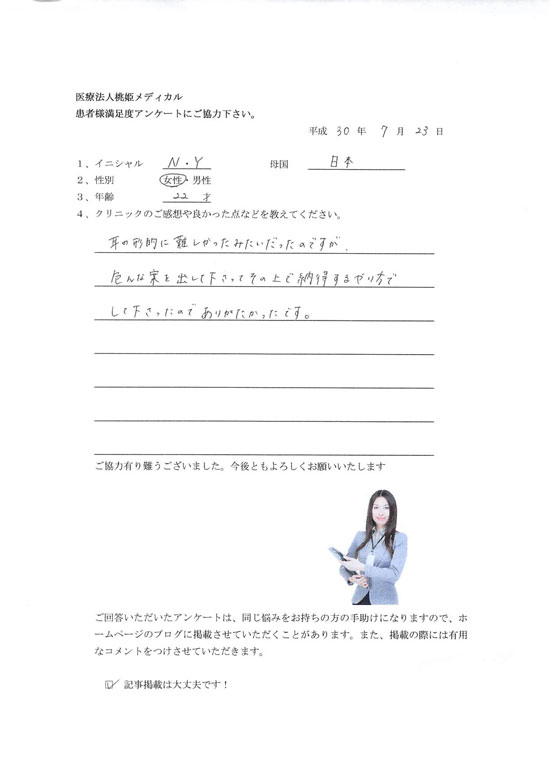 医療法人桃姫メディカル
患者様満足度アンケートにご協力下さい。
平成 30 年 7 月 23 日
1、イニシャル N・Y 母国 日本
2、性別 女性・男性
3、年齢 22 才
4、クリニックのご感想や良かった点などを教えてください。
耳の形的に難しかったみたいだったのですが、
色んな案を出して下さってその上で納得するやり方で
して下さったのでありがたかったです。
ご協力有り難うございました。今後ともよろしくお願いいたします
ご回答いただいたアンケートは、同じ悩みをお持ちの方の手助けになりますので、ホ
ームページのブログに掲載させていただくことがあります。また、掲載の際には有用
なコメントをつけさせていただきます。
☑ 記事掲載は大丈夫です！